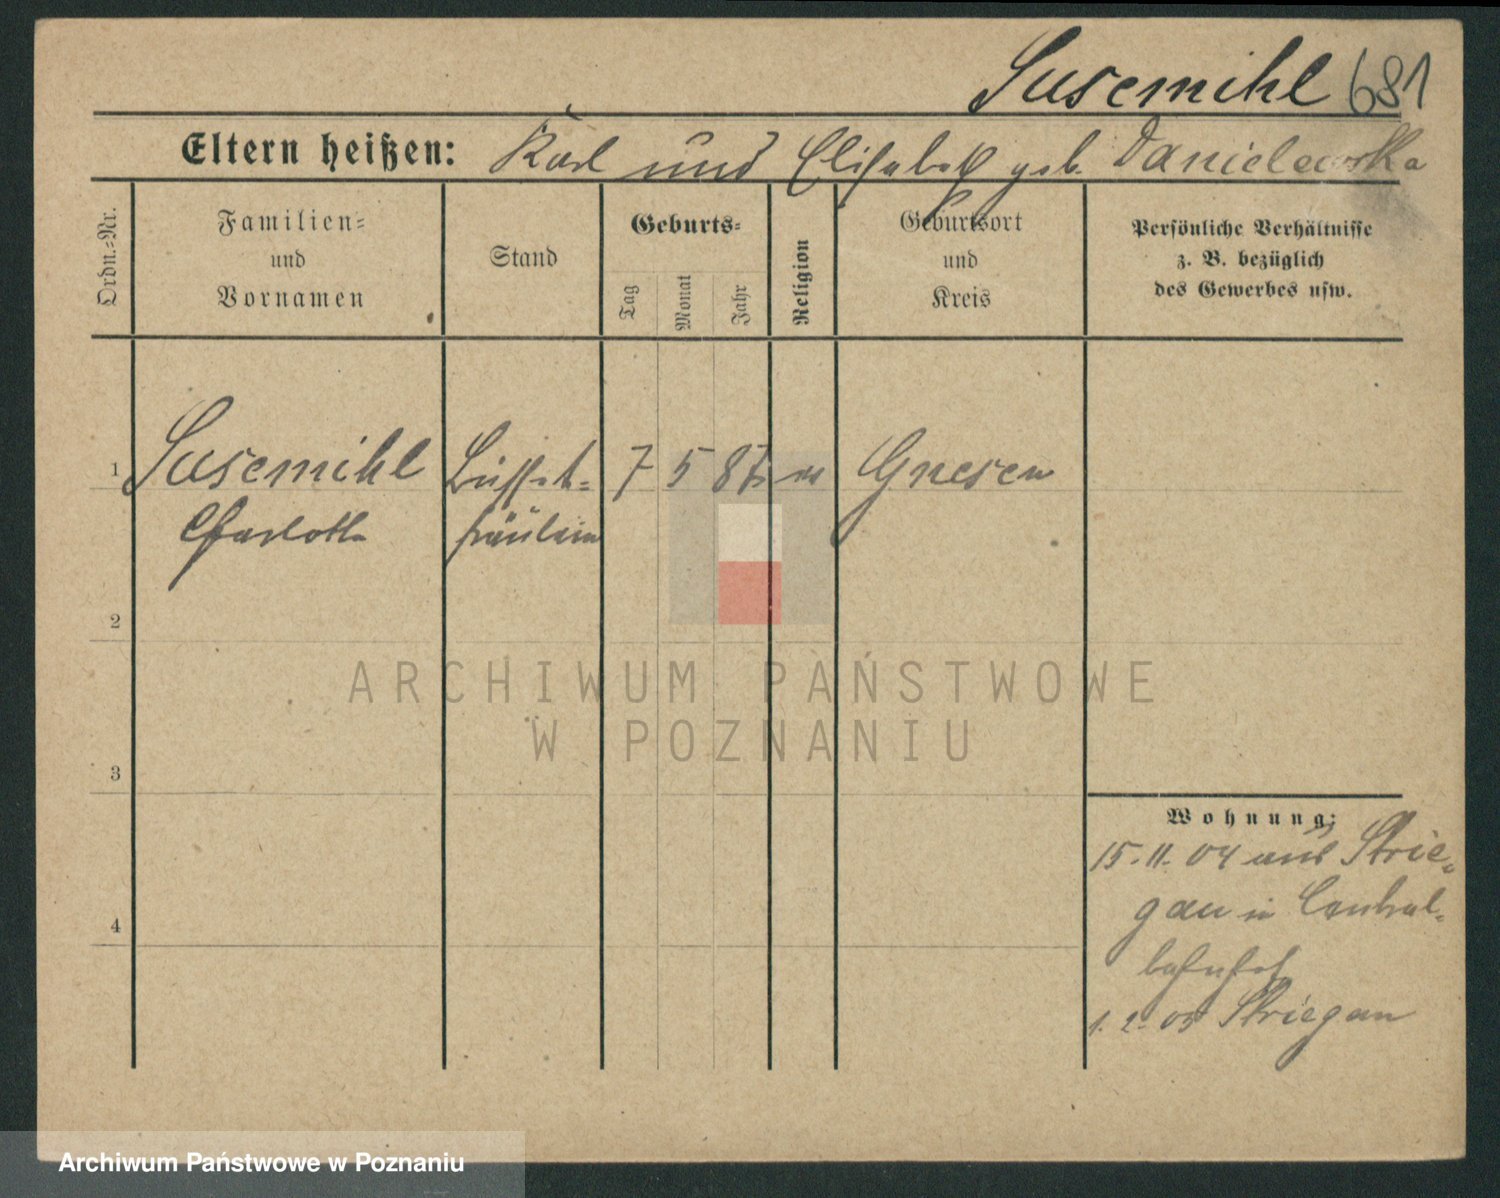 Susemihl 681
Eltern heißen: Karl und Elisabeth geb. Danielewska
Ordn.-Nr.
Familien-
und
Vornamen
Stand
Geburts-
Tag
Monat
Jahr
Religion
Geburtsort
und
Kreis
Persönliche Verhältnisse
z. B. bezüglich
des Gewerbes usw.
1 Susemihl Büffet- 7 5 87 Gnesen
Charlotte fräulein
2
3
4
Wohnung:
15.11.04 aus Strie-
gau in Central-
bahnhof
1.2.05 Striegau
ARCHIWUM PAŃSTWOWE
W POZNANIU
Archiwum Państwowe w Poznaniu